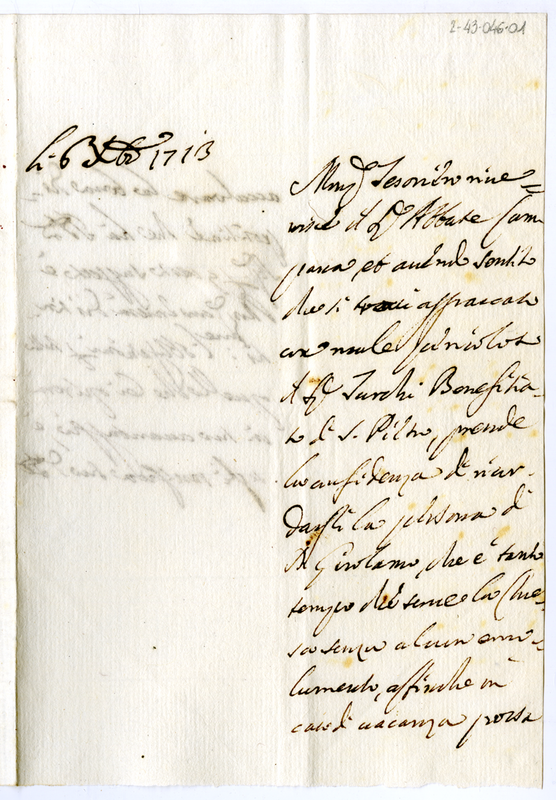 2-43-046-01
li 6 Xbre 1713
Monsr Tesoriero rive=
risce il Sr Abbate Cam
pana, et avendo sentito
che si trovi aggravato
con male pericoloso
il Sr Turchi Benefitia=
to di S. Pietro, prende
la confidenza di ricor=
darsli la persona di
D. Girolamo, che è tanto
tempo che serve la Chie=
sa senza alcun emo=
lumento, affinche in
caso di vacanza possa